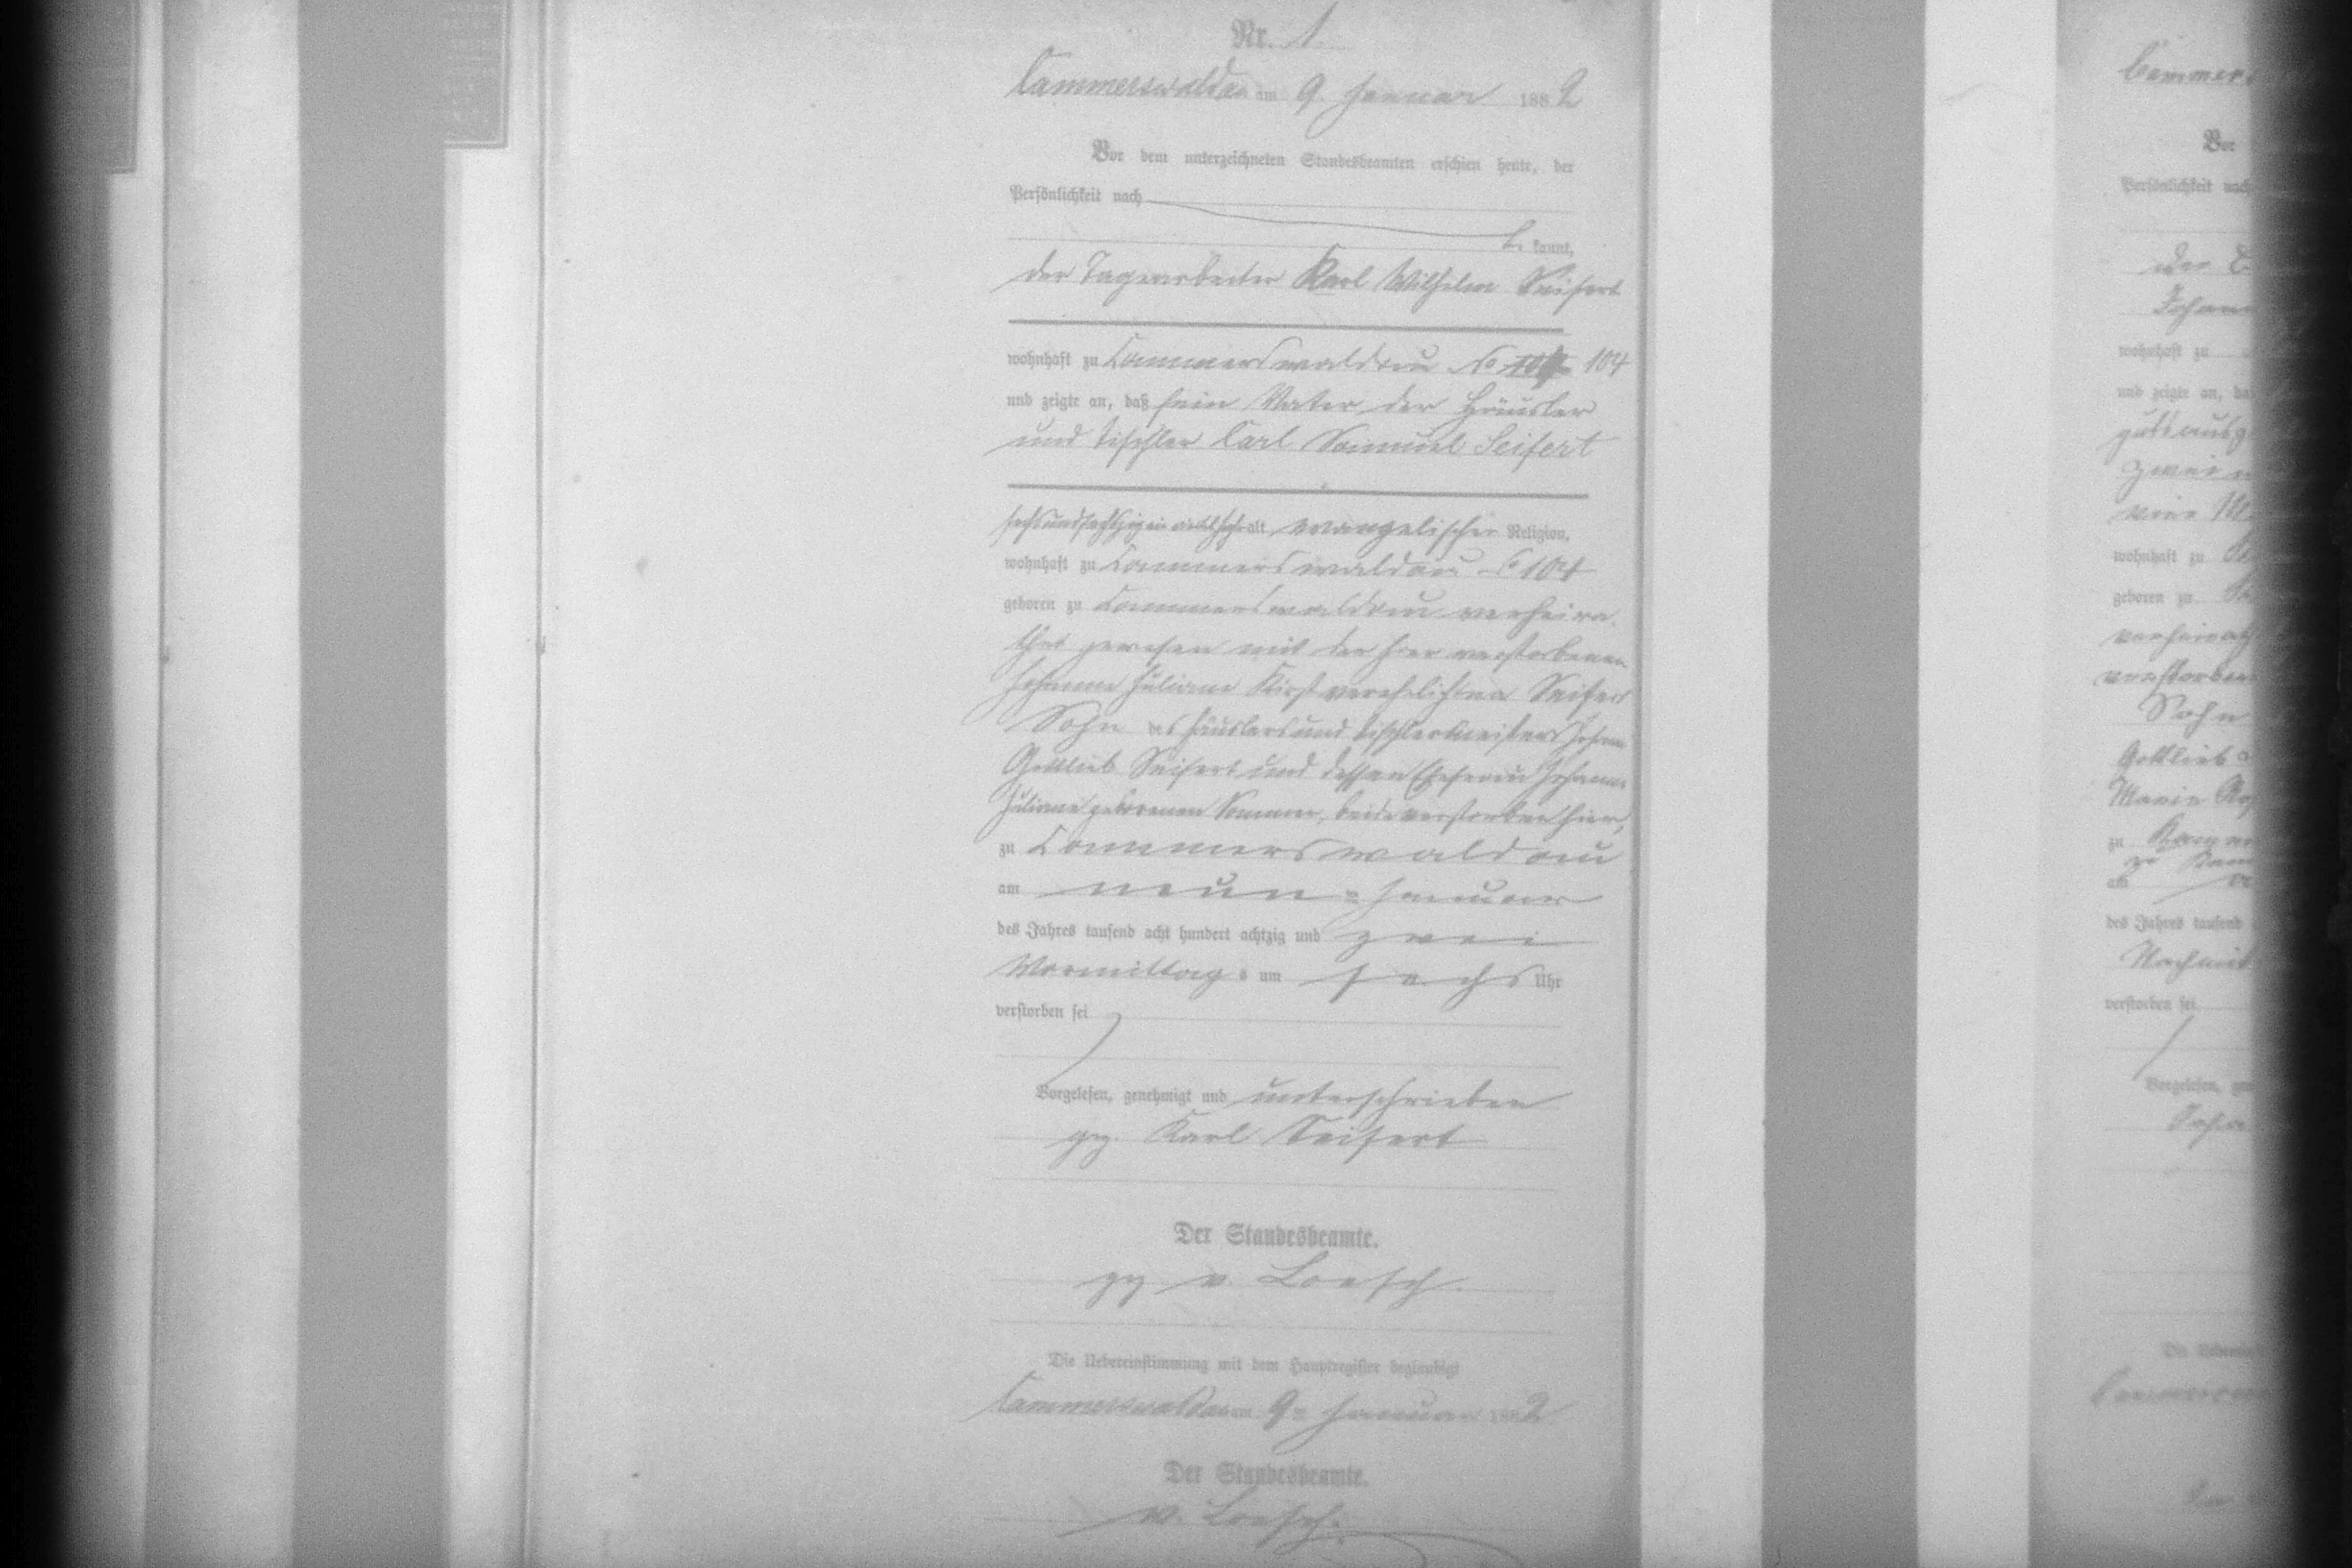 Nr. 1.
Cammerswaldau am 9. Januar 1882
Vor dem unterzeichneten Standesbeamten erschien heute, der
Persönlichkeit nach
be kannt,
der Tagearbeiter Karl Wilhelm Seifert
wohnhaft zu Cammerswaldau No 104
und zeigte an, daß sein Vater, der Häusler
und Tischler Carl Samuel Seifert
alt, evangelischer Religion,
wohnhaft zu Cammerswaldau No 104
geboren zu Cammerswaldau verheira-
thet gewesen mit der hier verstorbenen
Johanne Juliane verehelichten Seifert
Sohn des Häuslers und Tischlermeisters Johann
Gottlieb Seifert und dessen Ehefrau Johanne
Juliane geborenen Sommer, beide verstorben hier,
zu Cammerswaldau
am neun = Januar
des Jahres tausend acht hundert achtzig und zwei
Vormittags um sechs Uhr
verstorben sei
Vorgelesen, genehmigt und unterschrieben
gez. Karl Seifert
Der Standesbeamte.
gez v. Loesch.
Die Uebereinstimmung mit dem Hauptregister beglaubigt
Cammerswaldau am 9= Januar 1882
Der Standesbeamte.
v. Loesch.
Vor
Persönlichkeit nach
wohnhaft zu
und zeigte an, da
zwei
wohnhaft zu
geboren zu
verheirath
verstorben
Sohn
Gottlieb
Marie
zu
am
des Jahres tausend
Nachmit
verstorben sei
Vorgelesen, gen